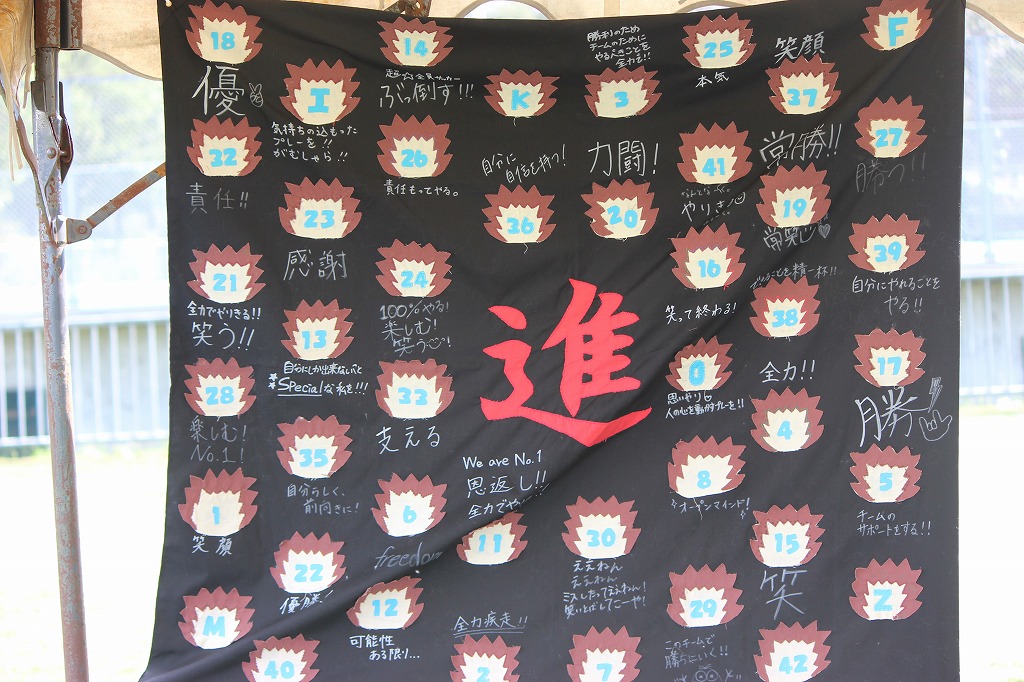 18
優
32
責任!!
21
全力でやりきる!!
笑う!!
28
楽しむ!
No.1!
1
笑顔
M
I
気持ちの込もった
プレーを!!
がむしゃら!!
23
感謝
13
自分にしか出来ないこと
Specialな私を!!!
35
自分らしく、
前向きに!
22
優勝!
40
14
ぶっ倒す!!!
26
責任もってやる。
24
100%やる!
楽しむ!
笑う!
33
支える
6
freedom
12
可能性
ある限り...
K
自分に
自信を持つ!
36
進
We are No.1
恩返し!!
全力でや
11
全力疾走!!
2
勝利のため
チームのために
やるべきことを
全力で!!
3
力闘!
20
30
ええねん
ええねん
ミスしたってええねん!
笑いとばしてこーや!
7
25
本気
41
やりきる
16
笑って終わる!
0
思いやり
人の心を動かすプレーを!!
8
オープンマインド!
29
このチームで
勝ちにいく!!
笑顔
37
常勝!!
19
常笑心
38
全力!!
4
15
笑
42
F
27
勝つ!!
39
自分にやれることを
やる!!
17
勝
5
チームの
サポートをする!!
Z